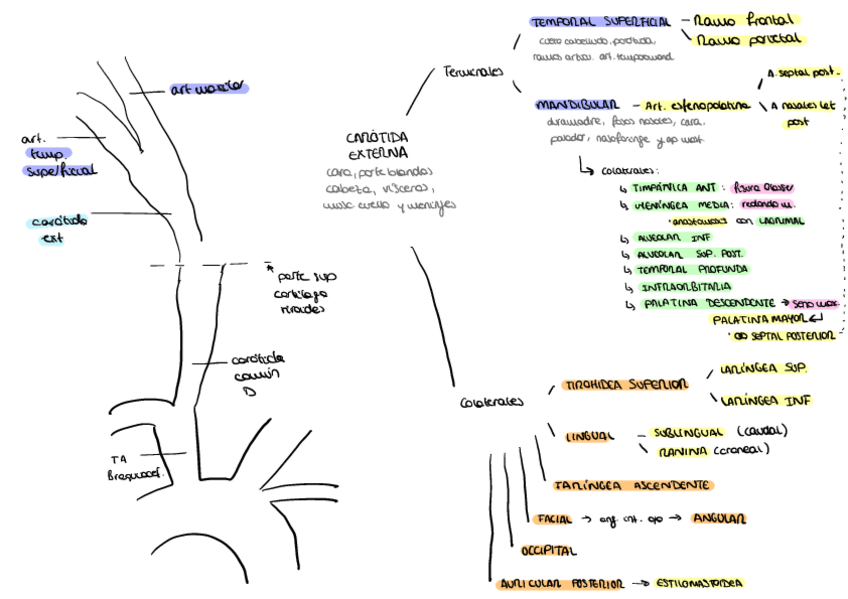 art maxilar
art.
temp.
superficial
carótida
ext
parte sup
cartílago
tiroides
carótida
común
D
TA
Braquiocef.
CARÓTIDA
EXTERNA
cara, parte blandas
cabeza, vísceras,
musc cuello y meninges
Terminales
TEMPORAL SUPERFICIAL – Ramo frontal
Ramo parietal
cuero cabelludo, parótida,
MANDIBULAR – Art. esfenopalatina
A. septal post.
A nasales lat
post
duramadre, fosas nasales, cara,
paladar, nasofaringe y ap mast.
Colaterales:
↳ TIMPÁNICA ANT: fisura Glaser
↳ MENÍNGEA MEDIA: redondo m.
*anastomosis con LAGRIMAL
↳ ALVEOLAR INF
↳ ALVEOLAR SUP. POST.
↳ TEMPORAL PROFUNDA
↳ INFRAORBITARIA
↳ PALATINA DESCENDENTE → seno max.
PALATINA MAYOR ↵
SEPTAL POSTERIOR
Colaterales
TIROIDEA SUPERIOR
LARÍNGEA SUP.
LARÍNGEA INF
LINGUAL – SUBLINGUAL (caudal)
RANINA (craneal)
FARÍNGEA ASCENDENTE
FACIAL → ang. int. ojo → ANGULAR
OCCIPITAL
AURICULAR POSTERIOR → ESTILOMASTOIDEA